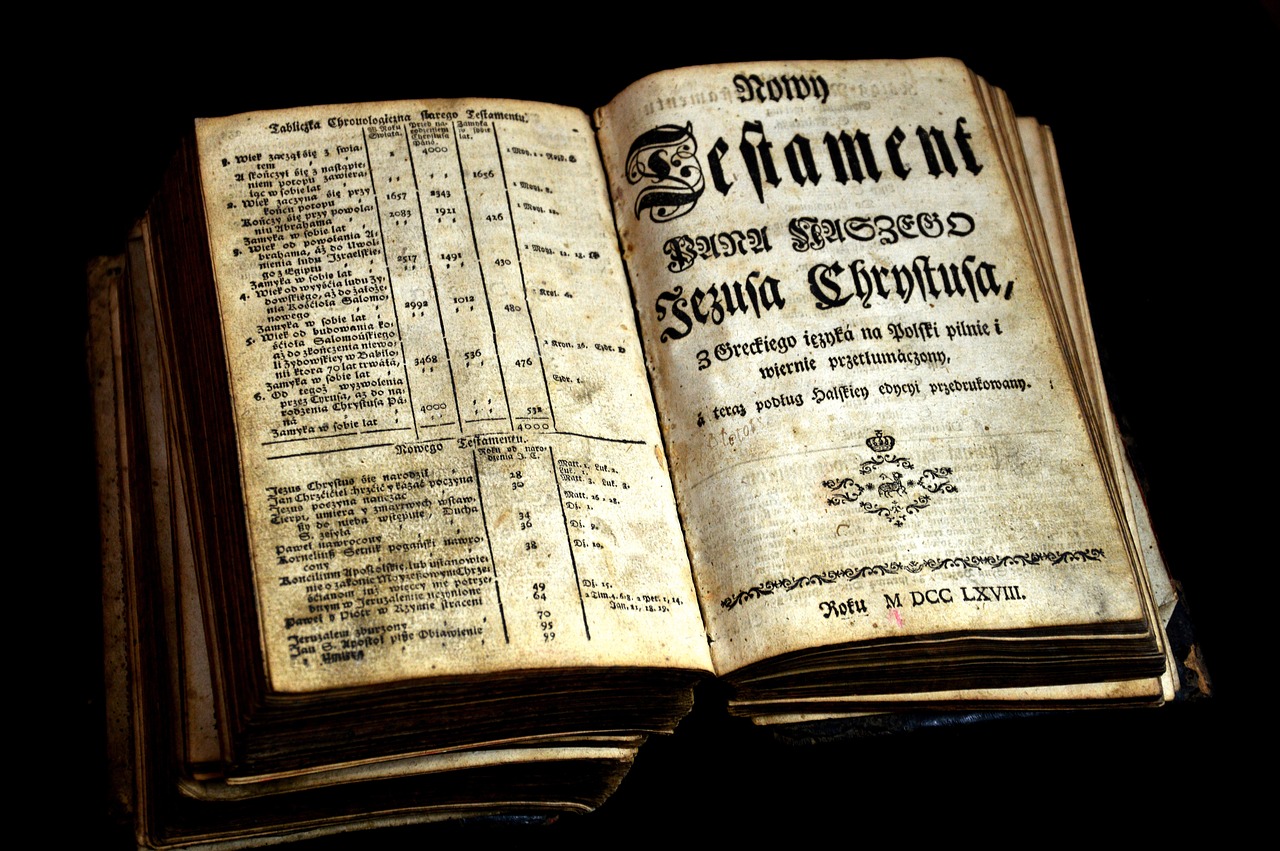 Tabliczka Chronologiczna starego Testamentu.
W Roku Swiata.
Przed narodzeniem Chrystusa Pana.
Zamyka w sobie lat.
1. Wiek zaczął się z swia-
tem 1 4000 1 Moy. 1
A skończył się z nastąpie-
niem potopu zawiera-
iąc w sobie lat 1656
2. Wiek zaczyna się przy
końcu potopu 1657 2343
Kończy się przy powoła-
niu Abrahama 2083 1921
Zamyka w sobie lat 426
3. Wiek od powołania A-
brahama, aż do Uwol-
nienia ludu Izraelskie-
go z Egiptu 2517 1491
Zamyka w sobie lat 430
4. Wiek od wyyścia ludu Zy-
dowskiego, aż do założe-
nia Kościoła Salomo-
nowego 2992 1012 1 Krol. 6.
Zamyka w sobie lat 480
5. Wiek od budowania ko-
ścioła Salomońskiego
aż do zkończenia niewo-
li Zydowskiey w Babilo-
nii ktora 70 lat trwała, 3468 536
Zamyka w sobie lat 476
6. Od tegoż wyzwolenia Ezdr. 1.
przez Cyrusa, aż do na-
rodzenia Chrystusa Pa-
na 4000
Zamyka w sobie lat 532
4000
Nowego Testamentu.
Roku od naro-
dzenia J. C.
Jezus Chrystus się narodził
Jan Chrzciciel chrzcić y kazać poczyna 28
Jezus poczyna nauczać 30
Cierpi, umiera y zmartwych wstaw-
szy do nieba wstępuie, Ducha
S. zsyła 34
Paweł nawrocony 36 Dz. 9.
Korneliusz Setnik pogański nawro-
cony 38 Dz. 10.
Koncilium Apostolskie, lub ustanowie-
nie o zakonie Moyżeszowym Chrze-
ścianom iuż więcey nie potrze-
bnym w Jeruzalemie uczynione 49 Dz. 15.
Paweł y Piotr w Rzymie straceni 64 2 Tim. 4. 6. 8. 2 Petr. 1, 14.
Jan. 21, 18. 19.
Jeruzalem zburzony 70
Jan S. Apostoł pisze Obiawienie 95
y umiera 99
Nowy
Testament
PANA NASZEGO
Jezusa Chrystusa,
Z Greckiego ięzyká na Polski pilnie i
wiernie przetłumáczony,
á teraz podług Halskiey edycyi przedrukowany.
Roku M DCC LXVIII.